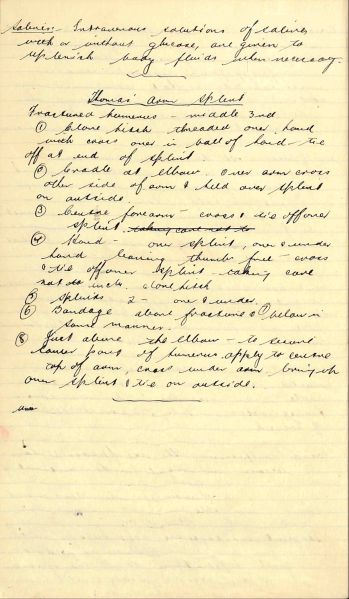 Salines:- Intravenous solutions of salines
with or without glucose, are given to
replenish body fluids when necessary.
Thomas Arm Splint
Fractured humerus - middle 3rd
① Clove hitch threaded over hand
with cross over in ball of hand tie
off at end of splint.
② Cradle at elbow. Over arm cross
other side of arm & held over splint
on outside.
③ forearm - cross & tie off over
splint. taking care not to
④ Hand - over splint, over & under
hand leaving thumb free - cross
& tie off over splint - taking care
not to clove hitch
⑤ Splints 2 - one & under.
⑥ Bandage above fracture & ⑦ below in
same manner.
⑧ Just above the elbow - to secure
lower part of humerus. apply to centre
top of arm, cross under arm bring up
over splint & tie on outside.